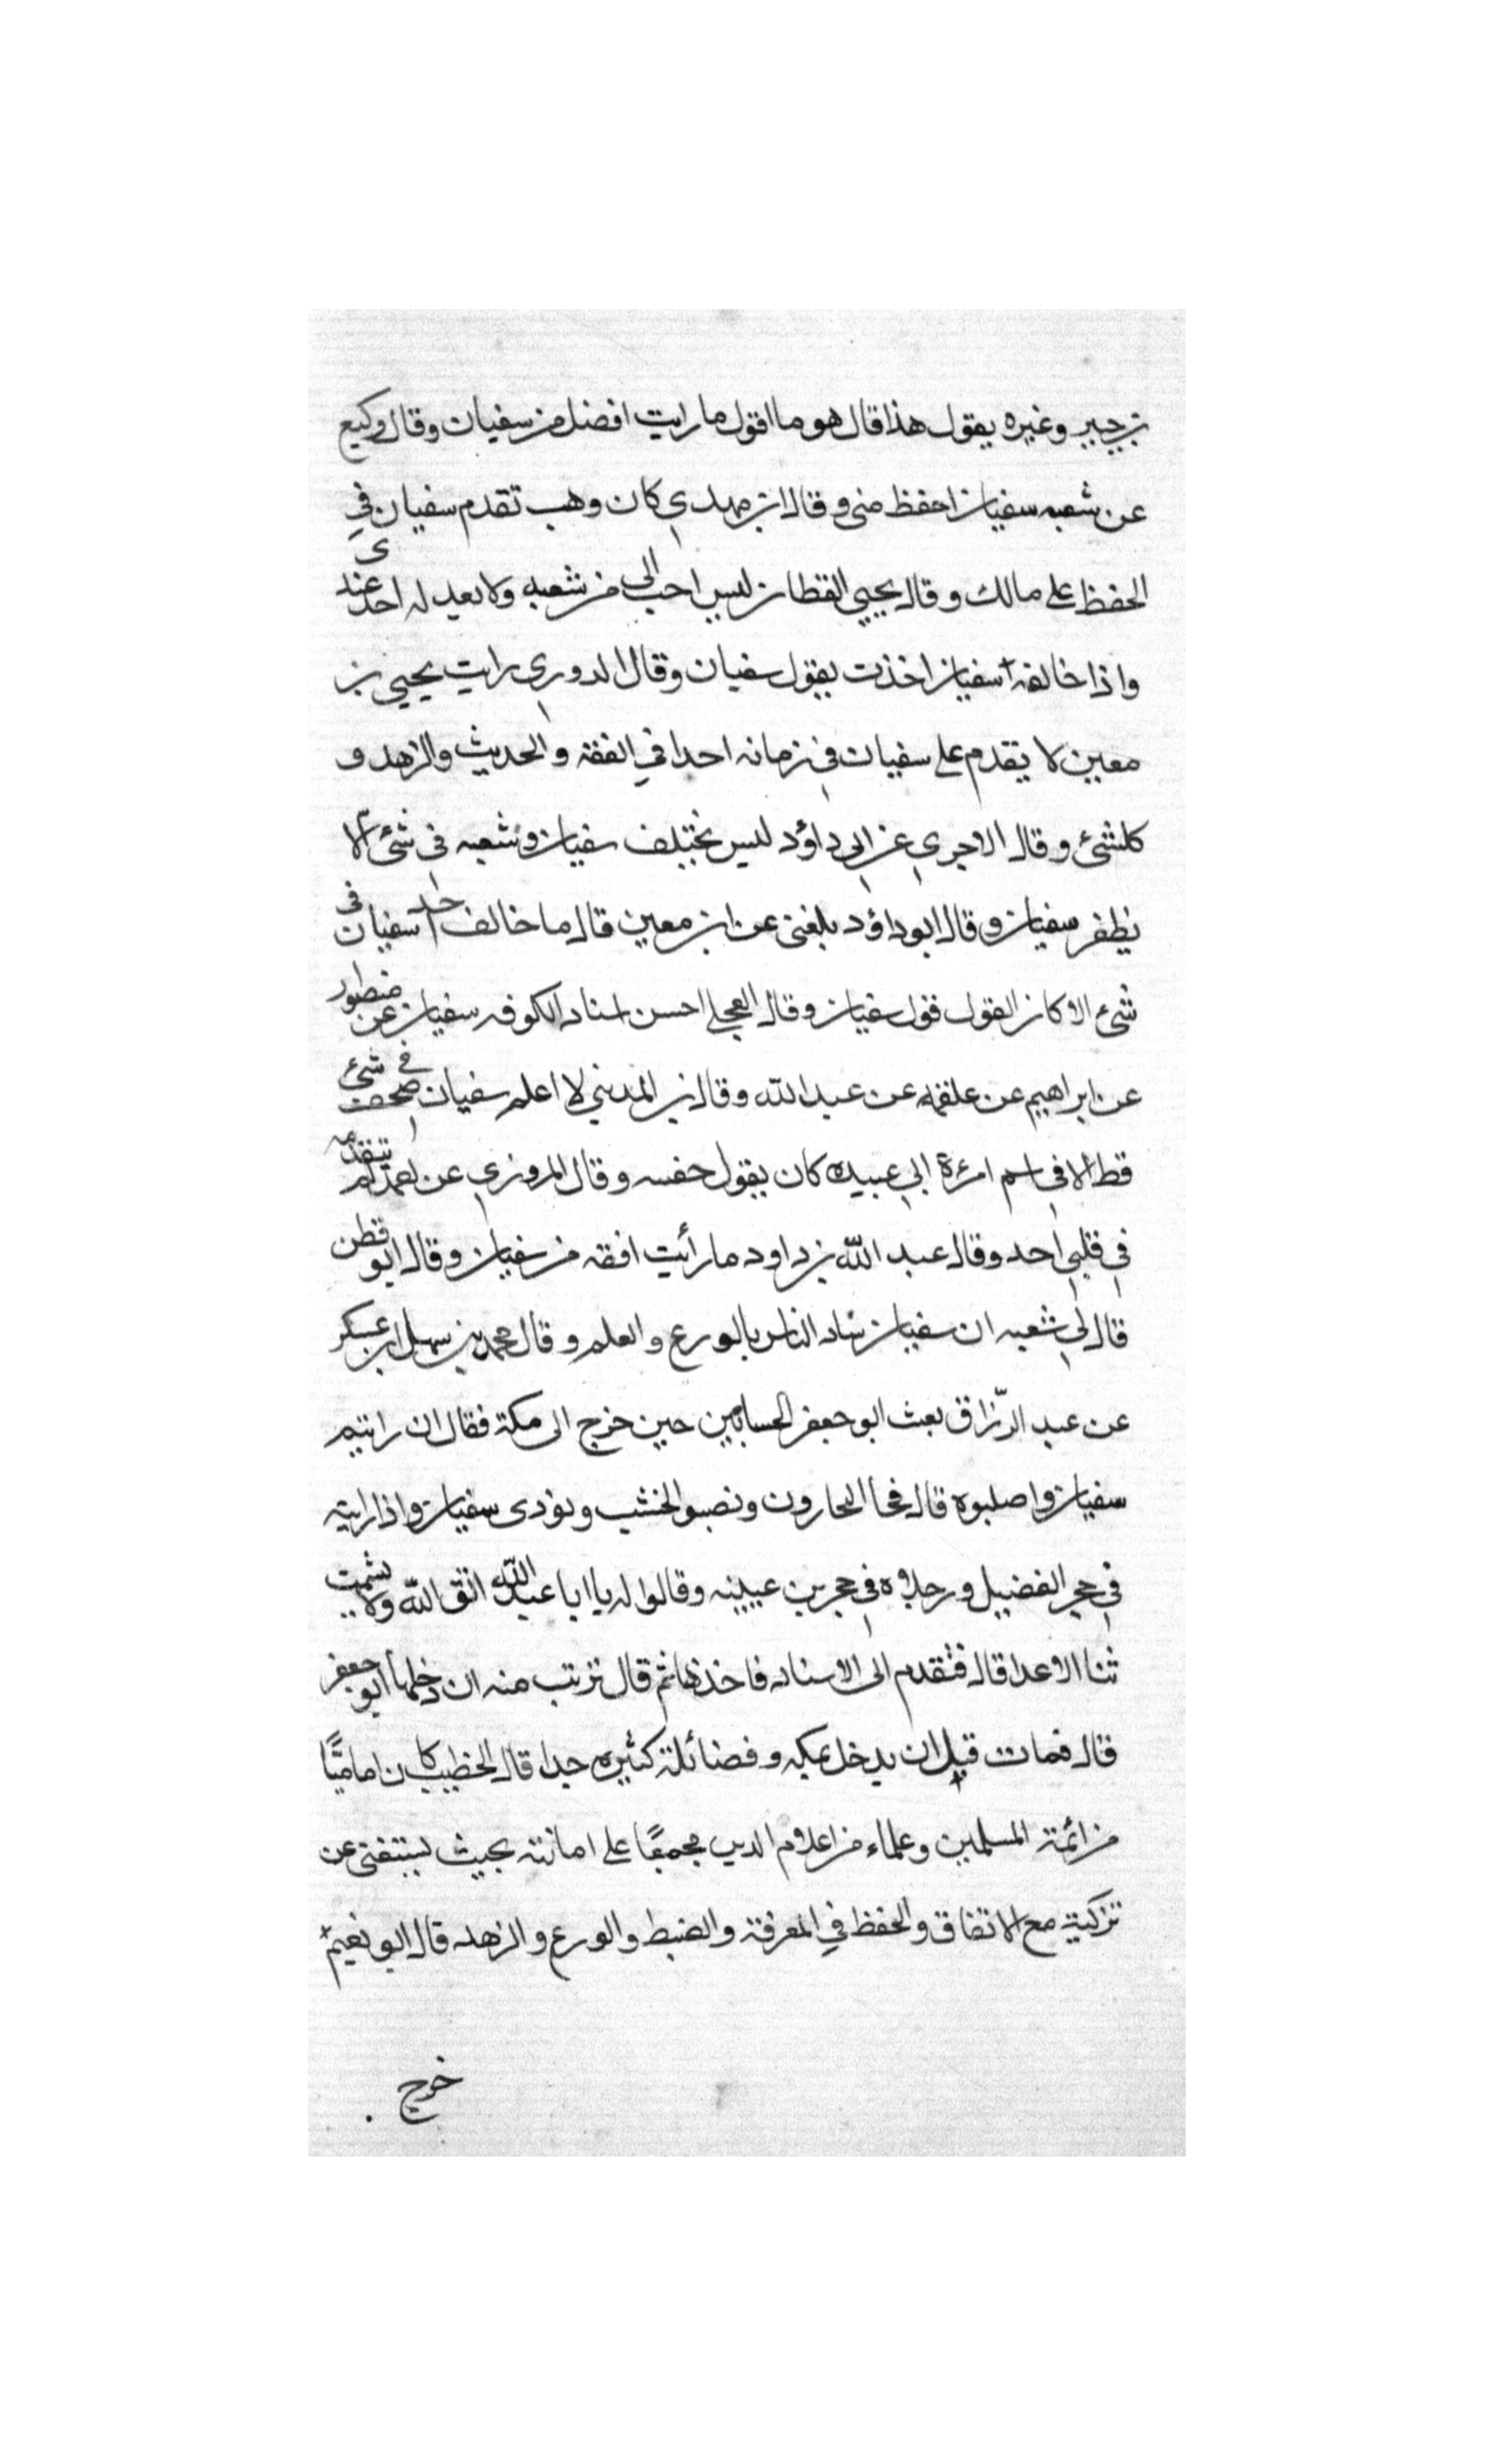 بن جبير وغيره يقول هذا قال هو ما اقول ما رايت افضل من سفيان وقال وكيع
عن شعبه سفيان احفظ مني وقال ابن مهدي كان وهب تقدم سفيان في
الحفظ على مالك وقال يحيي القطان ليس احب الى من شعبه ولا يعدله احد عندى
واذا خالفه سفيان اخذت بقول سفيان وقال الدوري رايت يحيي بن
معين لا يقدم على سفيان في زمانه احدا في الفقه والحديث والزهد و
كلشئ وقال الاجري عن ابي داؤد ليس يختلف سفيان وشعبه في شئ الا
يظفر سفيان وقال ابو داؤد بلغني عن ابن معين قال ما خالف احد سفيان في
شئ الا كان القول قول سفيان وقال العجلي احسن اسناد الكوفه سفيان عن منصور
عن ابراهيم عن علقمه عن عبد الله وقال بن المديني لا اعلم سفيان صحف في شئ
قط الا في اسم امرءة ابي عبيده كان يقول حفسه وقال المروزي عن احمد لم يتقدمه
في قلبي احد وقال عبد الله بن داود ما رأيت افقه من سفيان وقال ابو قطن
قال لي شعبه ان سفيان ساد الناس بالورع والعلم وقال محمد بن سهل ابن عسكر
عن عبد الرزاق بعث ابو جعفر الحسابين حين خرج الى مكة فقال ان رايتم
سفيان واصلبوه قال فجا النجارون ونصبو الخشب ونودى سفيان واذا رايته
في حجر الفضيل ورجلاه في حجر بن عيينه وقالوا له يا ابا عبد الله اتق الله ولا يشمت
ثنا الاعدا قال فتقدم الى الاستاد فاخذها ثم قال ترتب منه ان دخلها ابو جعفر
قال فمات قبل ان يدخل بمكه وفضائلة كثيره جدا قال الخطيب كان اماميًّا
من ائمة المسلمين وعلماء من اعلام الدين مجمعًا على امانته بحيث يستغني عن
تزكيته مع الاتفاق والحفظ في المعرفة والضبط والورع والزهد قال ابو نعيم
خرج